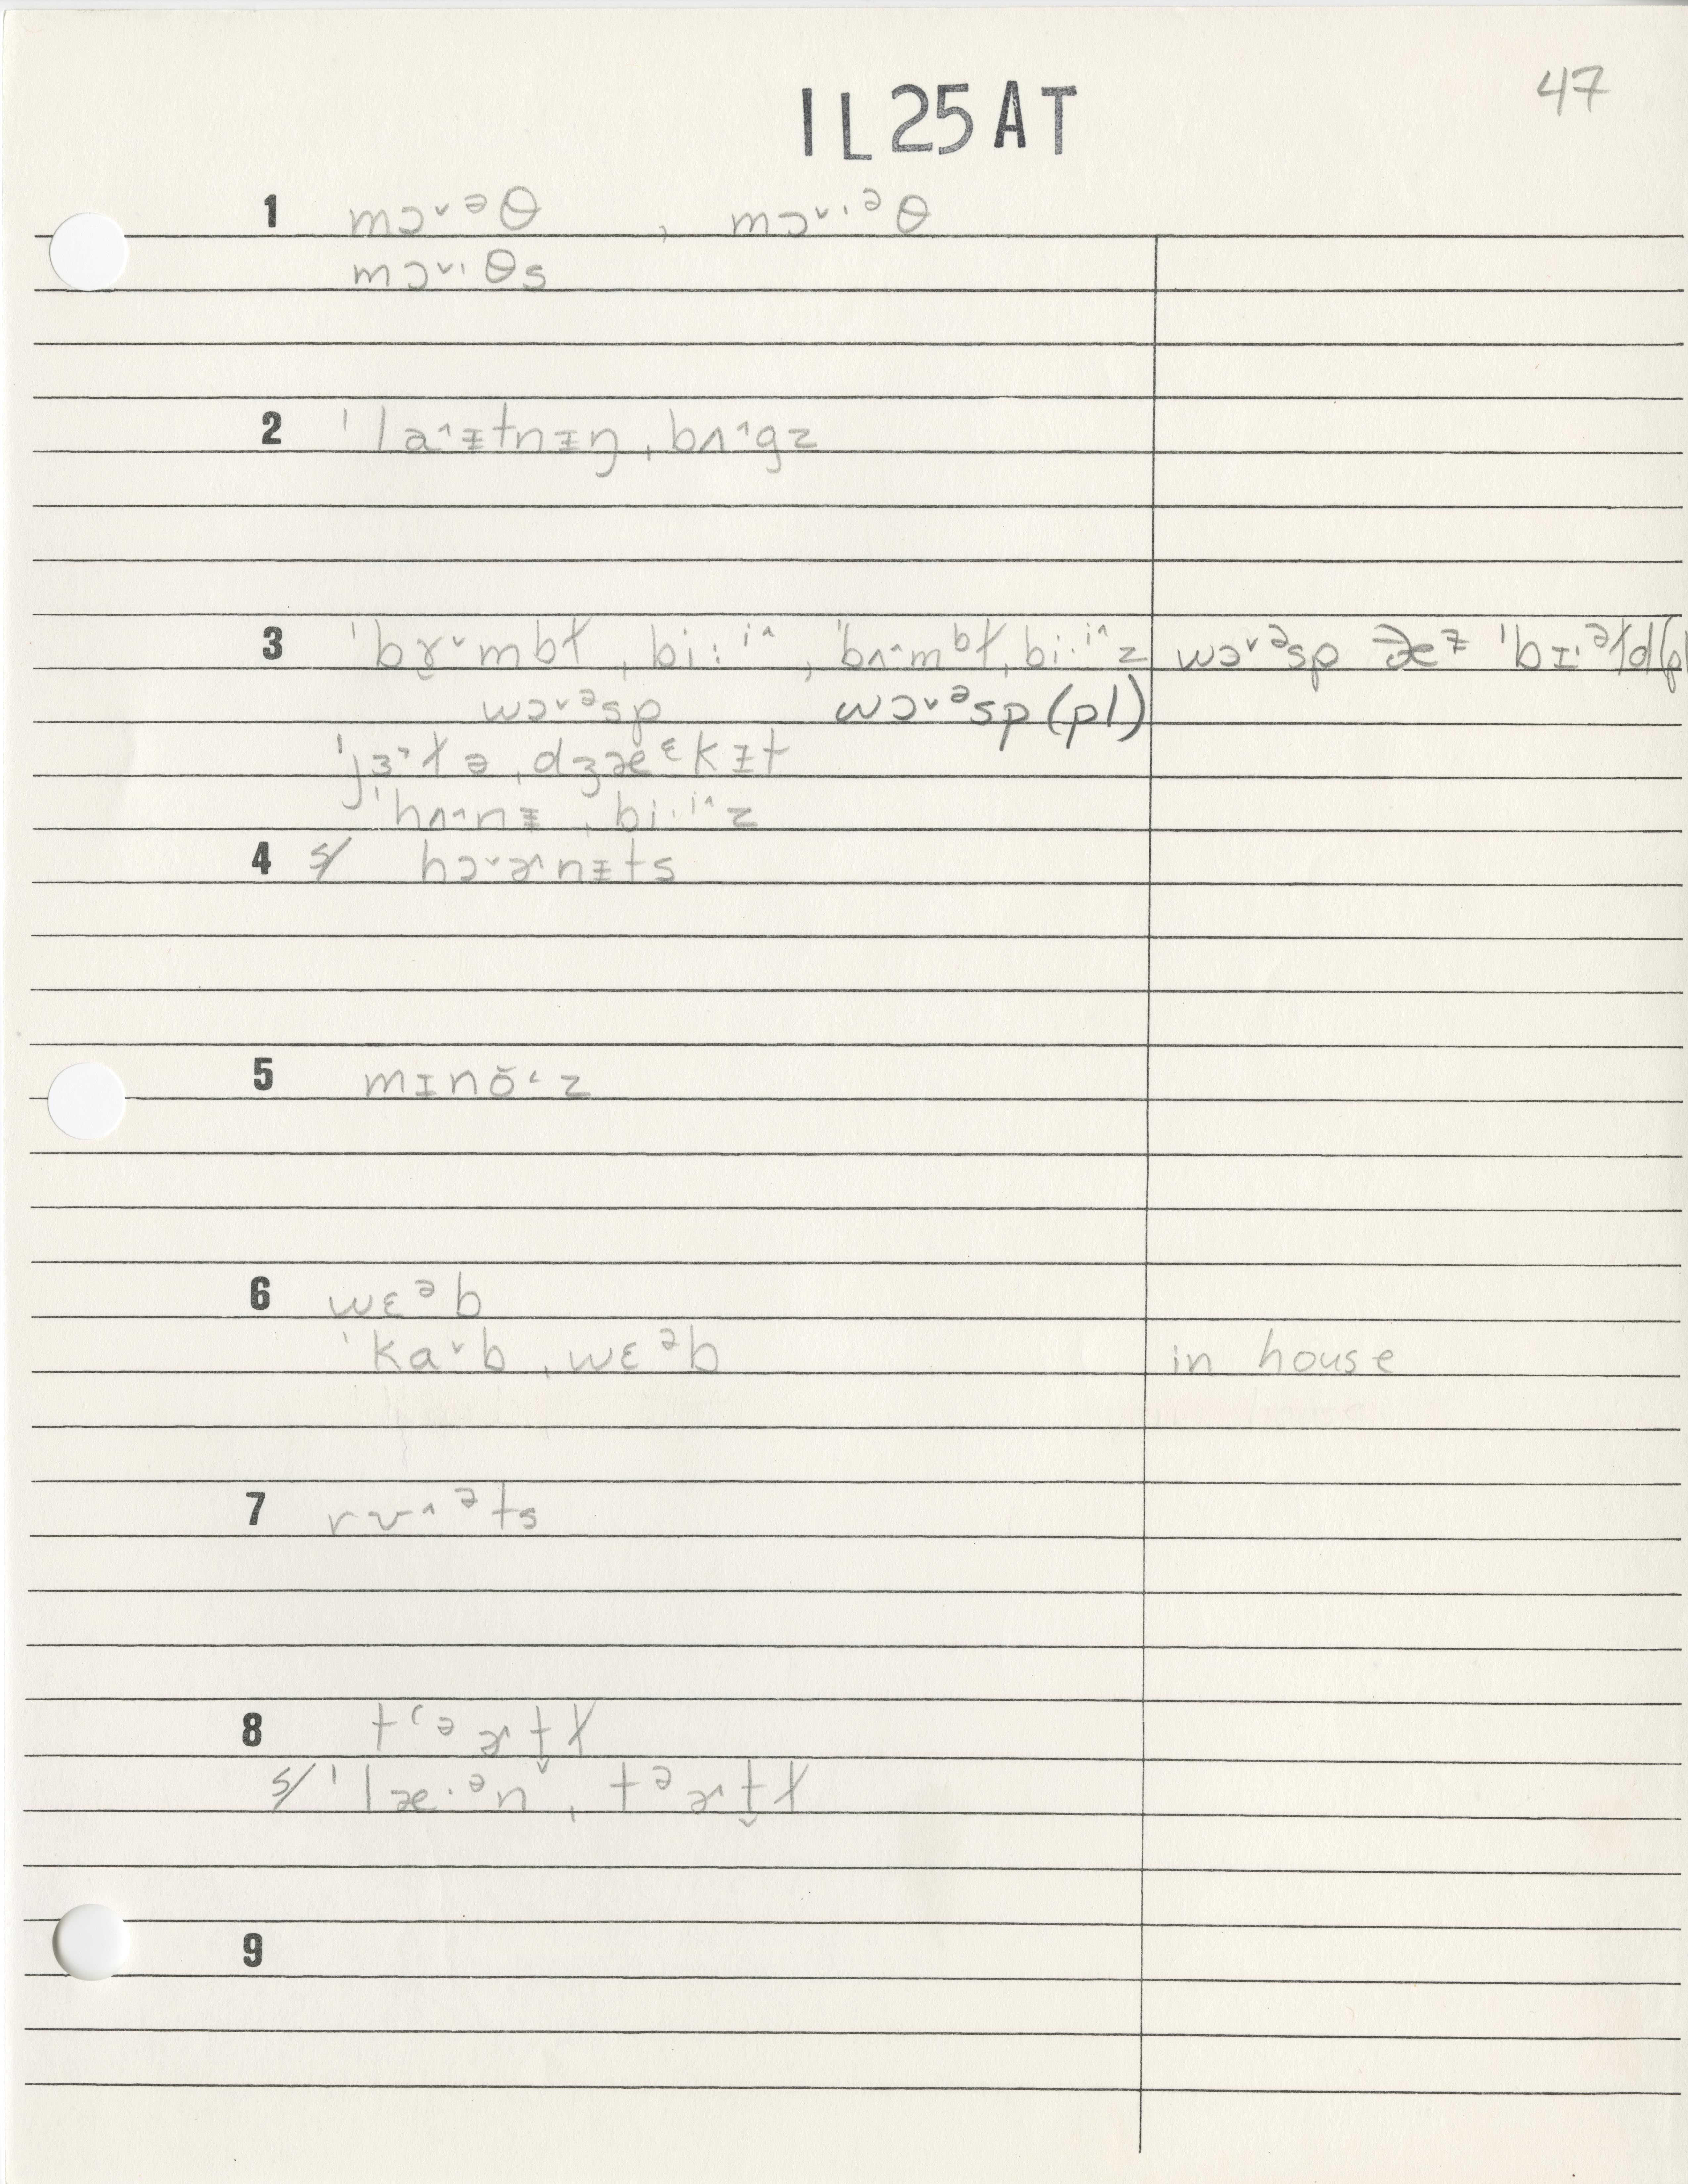 47
IL25AT
1 mɔ˅ᵊθ , mɔ˅ˈᵊθ
mɔ˅ˈθs
2 ˈla˄ɪtnɪŋ ˌbʌ˄gz
3 ˈbɤ˅mbɫ ˌbi:ⁱ˄ , ˈbʌ˄mbɫ ˌbi·ⁱ˄z wɔ˅ᵊsp ˈbɪˑᵊɫd
wɔ˅ᵊsp wɔ˅ᵊsp (pl)
ˈjɜ˂lə ˌdʒæᵋkɪt
ˈhʌ˄nɪ ˌbi·ⁱ˄z
4 s/ hɔ˅ɚnɪts
5 mɪnŏ˂z
6 wɛᵊb
ˈka˅b ˌwɛᵊb in house
7 rʊ˄ᵊts
8 tʻᵊɚtɫ
s/ ˈlæ·ᵊn ˌtᵊɚt̬ɫ
9